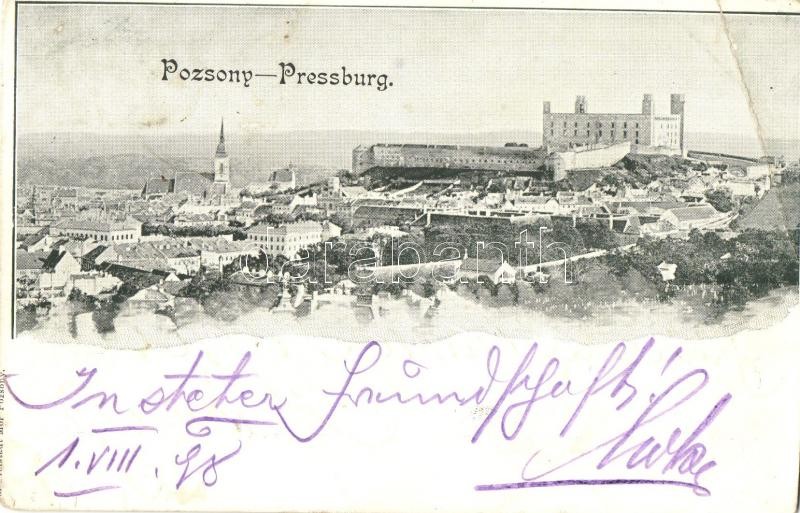 Pozsony—Pressburg.
darabanth
In steter Freundschaft!
1. VIII. 98